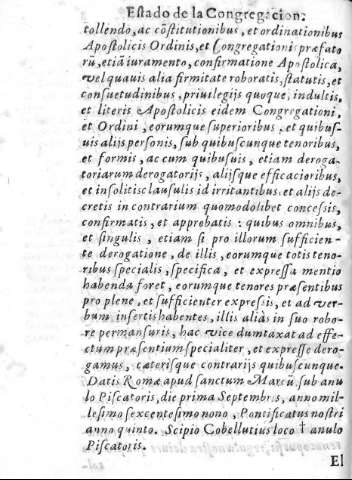 Estado de la Congregacion.
tollendo, ac cõstitutionibus, et ordinationibus
Apostolicis Ordinis, et Congregationi præfato
rũ, etiã iuramento, confirmatione Apostolica,
vel quauis alia firmitate roboratis, statutis, et
consuetudinibus, priuilegijs quoque, indultis,
et literis Apostolicis eidem Congregationi,
et Ordini, eorumque superioribus, et quibus-
uis alijs personis, sub quibuscunque tenoribus,
et formis, ac cum quibusuis, etiam deroga-
toriarum derogatorijs, alijsque efficacioribus,
et insolitis clausulis id irritantibus et alijs de-
cretis in contrarium quomodolibet concessis,
confirmatis, et approbatis: quibus omnibus,
et singulis, etiam si pro illorum sufficien-
te derogatione, de illis, eorumque totis teno-
ribus specialis, specifica, et expressa mentio
habenda foret, eorumque tenores præsentibus
pro plene, et sufficienter expressis, et ad ver-
bum insertis habentes, illis aliàs in suo robo-
re permansuris, hac vice dumtaxat ad effe-
ctum præsentium specialiter, et expresse dero-
gamus, cæterisque contrarijs quibuscunque.
Datis Romæ apud sanctum Marcũ, sub anu
lo Piscatoris, die prima Septembris, anno mil-
lesimo sexcentesimo nono, Pontificatus nostri
anno quinto. Scipio Cobellutius loco † anulo
Piscatoris.
El